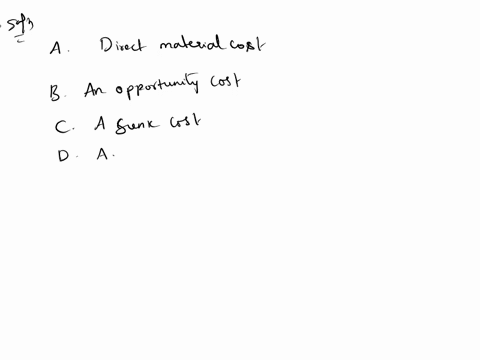 Soln
A. Direct material cost
B. An opportunity cost
C. A sunk cost
D. A.